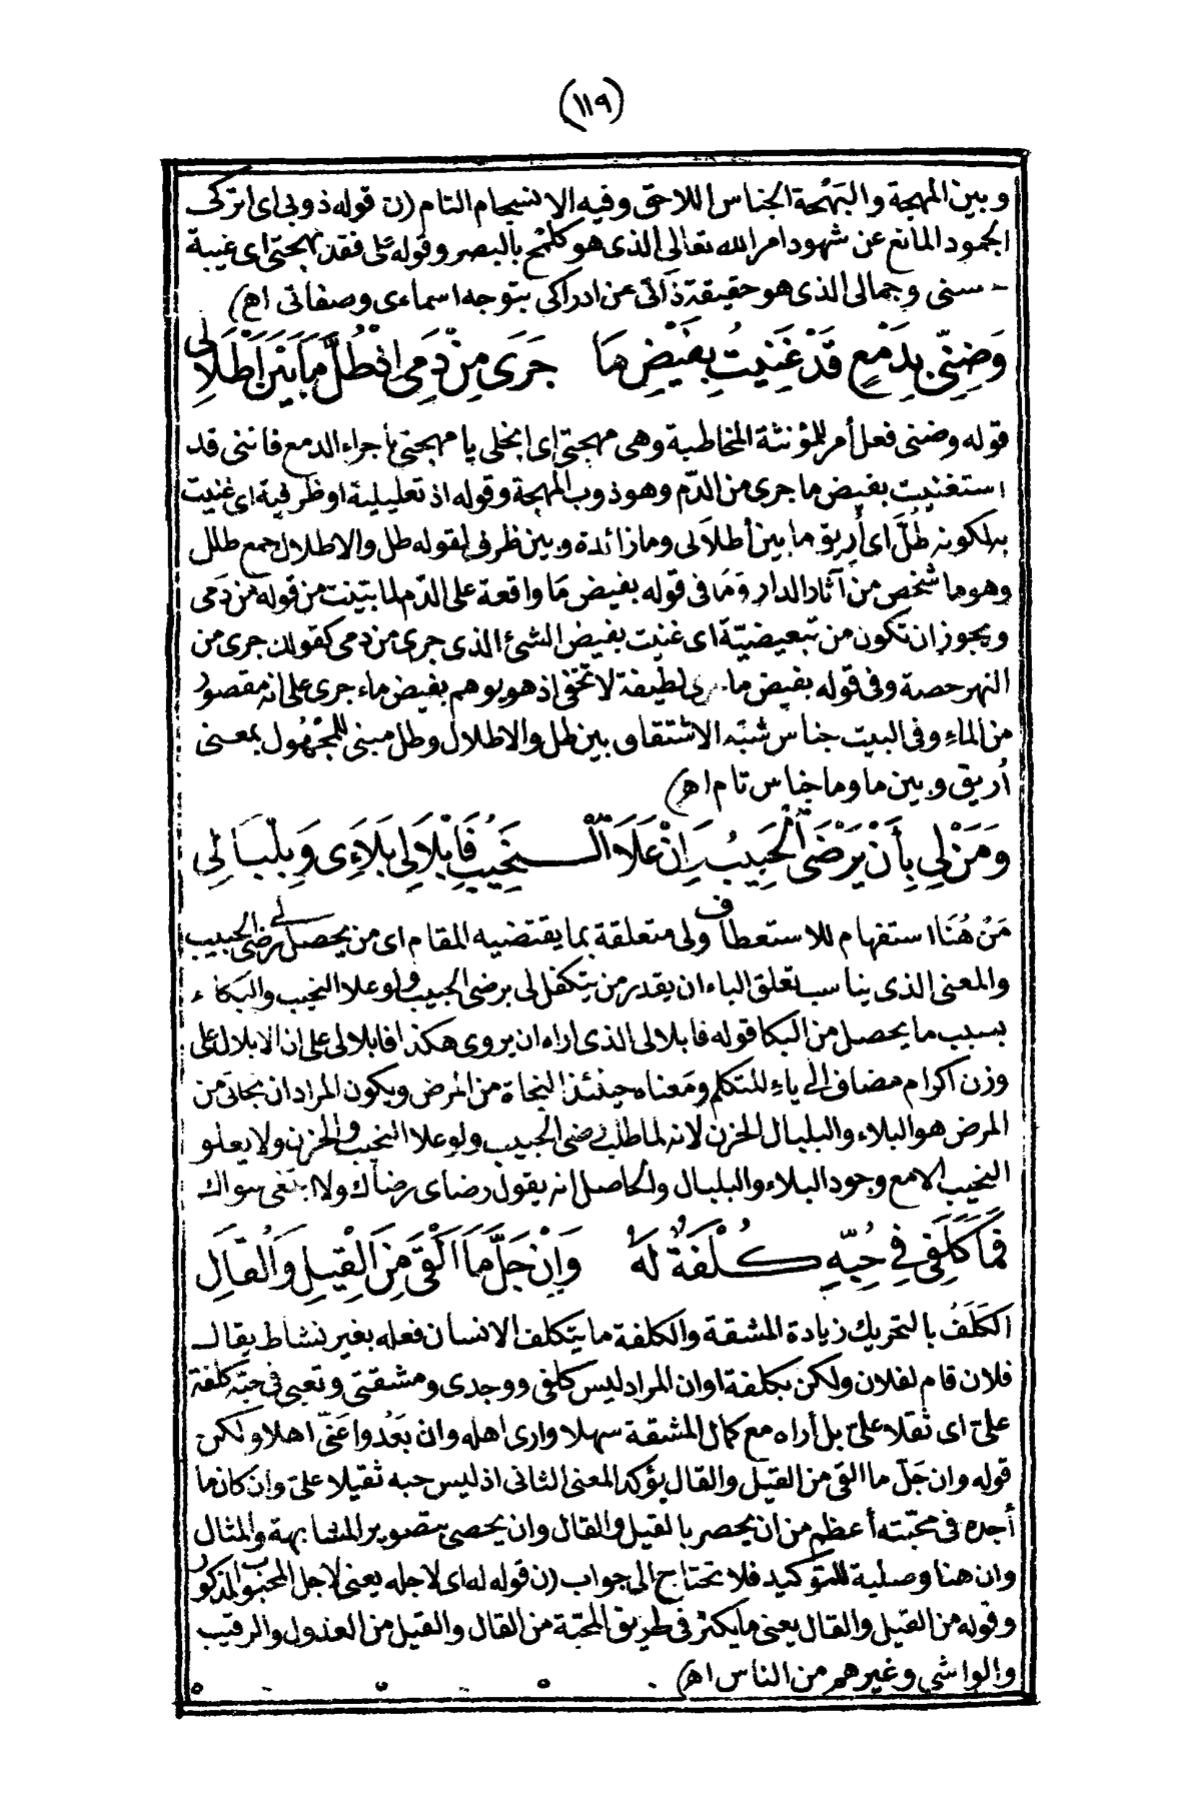 (١١٩)
وبين المهجة والبهجة الجناس اللاحق وفيه الانسجام التام (ن قوله ذوبي اى اتركى
الجمود المانع عن شهود امر الله تعالى الذى هو كلمح بالبصر وقوله على فقد بهجتى اى غيبة
حسنى وجمالى الذى هو حقيقة ذاتى عن ادراكى بتوجه اسماءى وصفاتى اهـ)
وَضِنِّى بِدَمْعٍ قَدْ غَنِيتُ بِفَيْضِ مَا جَرَى مِنْ دَمِى اذْ طُلَّ مَا بَيْنَ اَطْلَالِى
قوله وضنى فعل أمر للمؤنثة المخاطبة وهى مهجتى اى ابخلى يا مهجتى باجراء الدمع فاننى قد
استغنيت بفيض ما جرى من الدّم وهو ذوب المهجة وقوله اذ تعليلية او ظرفية اى غنيت
به لكونه طُلَّ اى أريق ما بين أطلالى وما زائدة وبين ظرف لقوله طل والاطلال جمع طلل
وهو ما شخص من آثار الدار وَمَا فى قوله بفيض مَا واقعة على الدّم لما تبيّنت من قوله من دَمى
ويجوز ان تكون من تبعيضيّة اى غنيت بفيض الشئ الذى جرى من دمى كقولك جرى من
النهر حصة وفى قوله بفيض ما لطيفة لا تخفى اذ هو يوهم بفيض ماء جرى على انه مقصور
من الماءِ وفى البيت جناس شبه الاشتقاق بين طل والاطلال وطل مبنى للمجْهُول بمعنى
أريق وبين ما وما جناس تام اهـ)
وَمَنْ لِى بِأَنْ يَرْضَى الْحَبِيبُ وَانْ عَلَا النَّحِيبُ فَابْلَالِى بَلَاءِى وَبِلْبَالِى
مَنْ هُنَا استفهام للاستعطاف ولى متعلقة بما يقتضيه المقام اى من يحصل لى رضى الحبيب
والمعنى الذى يناسب تعلق الباء ان يقدر من يتكفل لى برضى الحبيب ولو علا النحيب والبكاء
بسبب ما يحصل من البكا قوله فابلالى الذى اراه ان يروى هكذا فابلالى على ان الابلال على
وزن اكرام مضاف الى ياءِ المتكلم ومعناه حينئذ النجاة من المرض ويكون المراد ان نجاتى من
المرض هو البلاء والبلبال الحزن لانه لما طلب رضى الحبيب ولو علا النحيب والحزن ولا يعلو
النحيب الا مع وجود البلاء والبلبال والحاصل انه يقول رضاى رضاك ولا ابتغى سواك
فَمَا كَلَفِى فِى حُبِّهِ كُلْفَةٌ لَهُ وَانْ جَلَّ مَا اَلْقَى مِنَ الْقِيلِ وَالْقَالِ
الكَلَفُ بالتحريك زيادة المشقة والكلفة ما يتكلف الانسان فعله بغير نشاط يقال
فلان قام لفلان ولكن بكلفة او ان المراد ليس كلفى ووجدى ومشقتى وتعبى فى حبّه كلفة
علىّ اى ثقلا علىّ بل أراه مع كمال المشقة سهلا وارى اهله وان بَعُدوا عَنّى اهلا ولكن
قوله وان جَلّ ما القى من القيل والقال يؤكد المعنى الثانى اذ ليس حبه ثقيلا علىّ وان كان ما
أجده فى محبّته أعظم من ان يحصر بالقيل والقال وان يحصى بتصوير المشابهة والمثال
وان هنا وصلية للتوكيد فلا تحتاج الى جواب (ن قوله له اى لاجله يعنى لاجل المحبوب المذكور
وقوله من القيل والقال يعنى ما يكثر فى طريق المحبّة من القال والقيل من العذول والرقيب
والواشى وغيرهم من الناس اهـ)